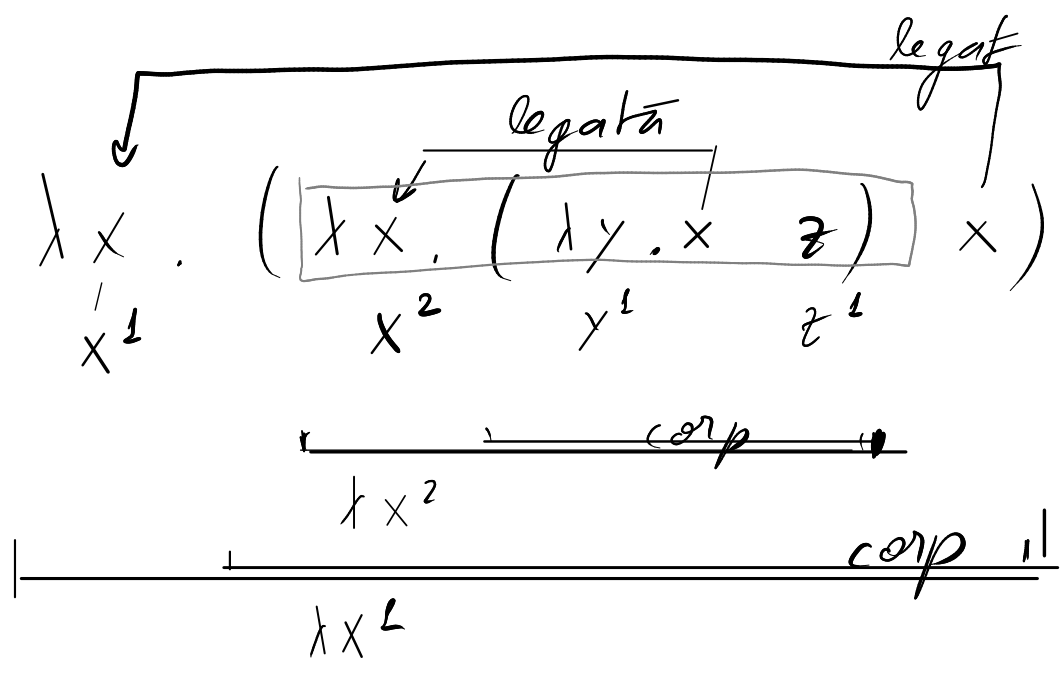 legat
legată
λx . ( λx . ( λy . x z ) x )
x¹ x² y¹ z¹
corp
λx²
corp
λx¹